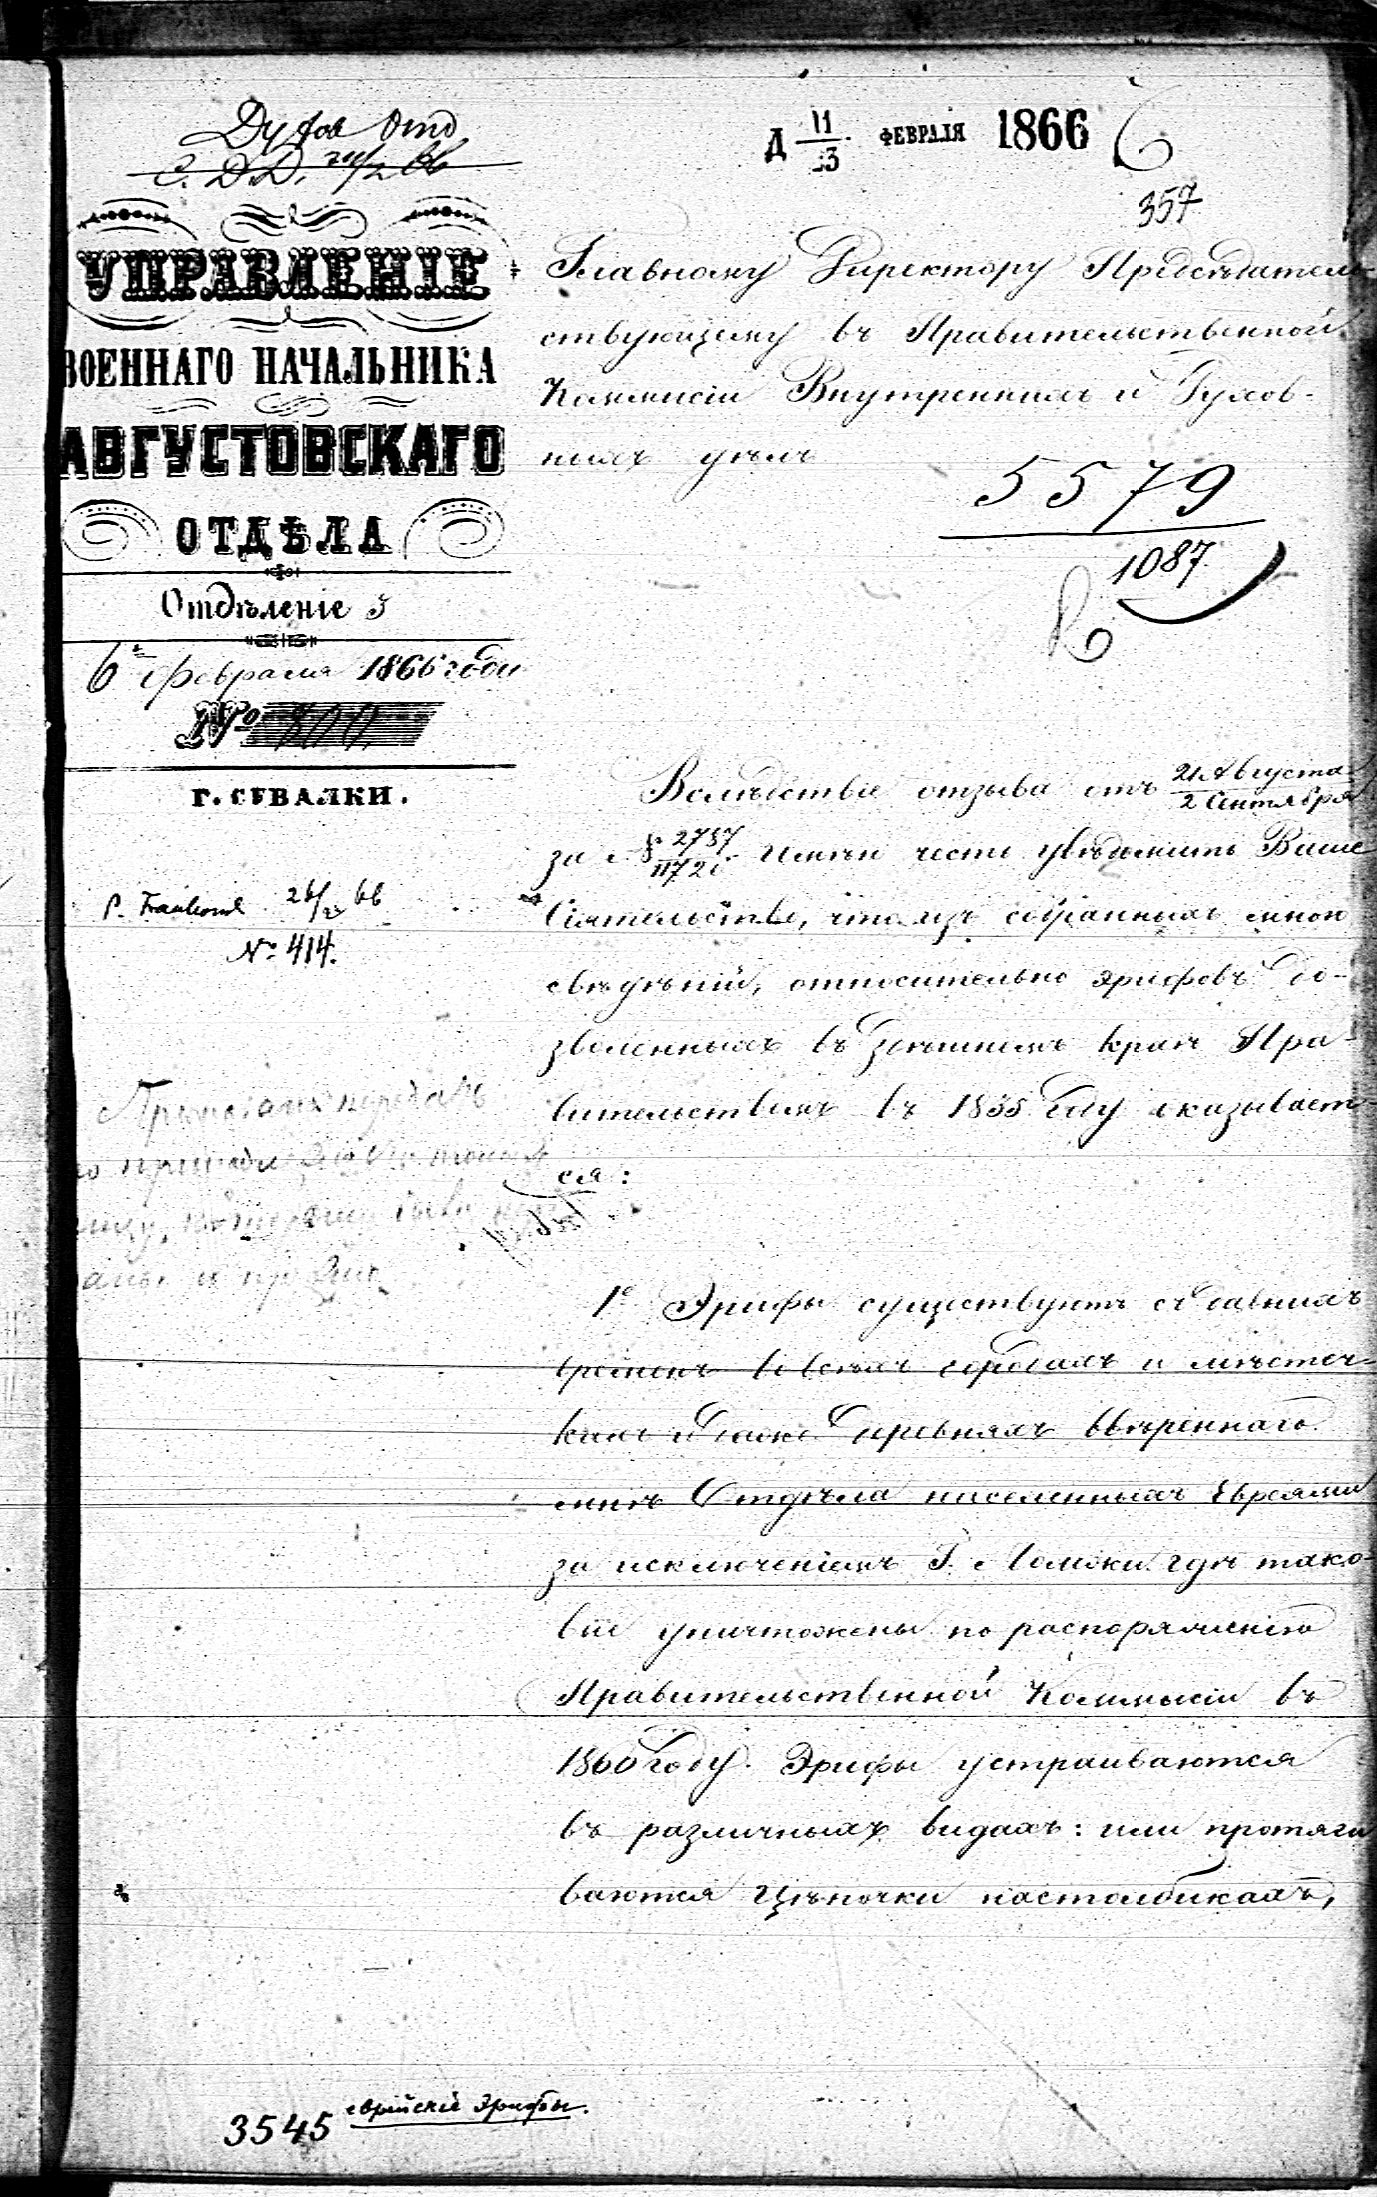 Духов Отд.
С. Д.Д.
УПРАВЛЕНІЕ
ВОЕННАГО НАЧАЛЬНИКА
АВГУСТОВСКАГО
ОТДѢЛА
Отдѣленіе 3
6 Февраля 1866 года
№ 800
Г. СУВАЛКИ.
26/2 66
№ 414.
Д 11/23 ФЕВРАЛЯ 1866
357
Главному Директору Предсѣдатель-
ствующему въ Правительственной
Коммисіи Внутреннихъ и Духов-
ныхъ дѣлъ
5579
1087
Вслѣдствіе отзыва отъ 21 Августа / 2 Сентября
за № 2757 / 11720 имѣю честь увѣдомить Ваше
Сіятельство, что изъ собранныхъ мною
свѣдѣній, относительно эрифовъ до-
зволенныхъ въ здѣшнемъ краѣ Пра-
вительствомъ въ 1835 году оказывает-
ся:
1е Эрифы существуютъ съ давнихъ
временъ во всѣхъ городахъ и мѣстеч-
кахъ а также деревняхъ ввѣреннаго
мнѣ Отдѣла населенныхъ Евреями
за исключеніемъ Г. Ломжи гдѣ тако-
выя уничтожены по распоряженію
Правительственной Коммисіи въ
1860 году. Эрифы устраиваются
въ различныхъ видахъ: или протяги
ваются цѣпочки на столбикахъ,
3545 еврейскіе эрифы.